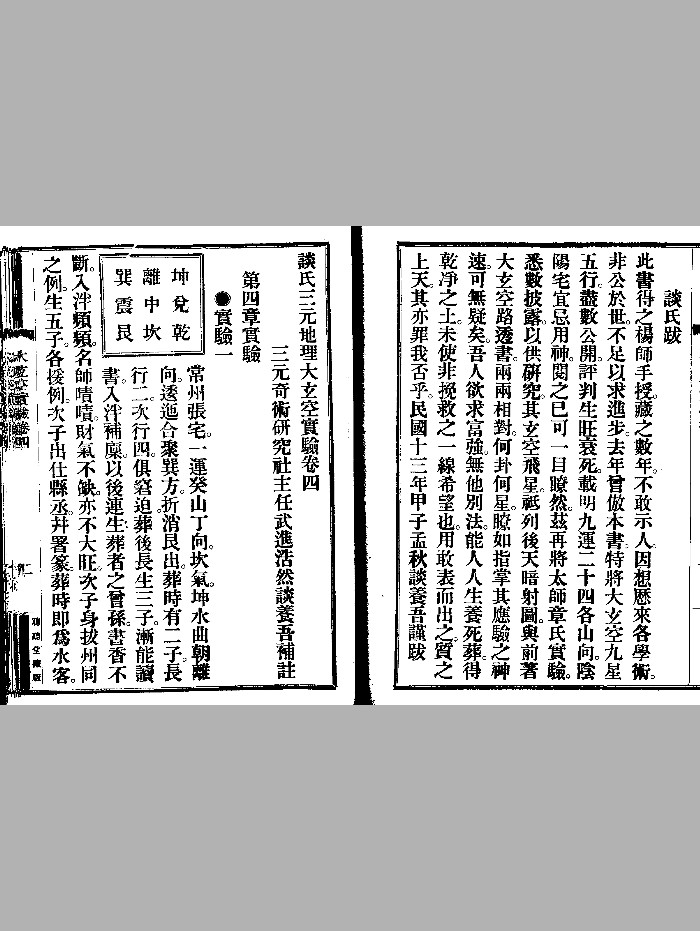 談氏跋
此書得之楊師手授。藏之數年。不敢示人。因想歷來各學術。
非公於世。不足以求進步。去年曾倣本書。特將大玄空九星
五行。盡數公開。評判生旺衰死。載明九運二十四各山向。陰
陽宅宜忌用神。閱之已可一目瞭然。茲再將太師章氏實驗。
悉數披露。以供研究。其玄空飛星。祗列後天暗射圖。與前著
大玄空路透書。兩兩相對。何卦何星。瞭如指掌。其應驗之神
速。可無疑矣。吾人欲求富強。無他別法。能人人生養死葬。得
乾淨之土。未使非挽救之一線希望也。用敢表而出之。質之
上天。其亦罪我否乎。民國十三年甲子孟秋談養吾謹跋
談氏三元地理大玄空實驗卷四
三元奇術研究社主任武進浩然談養吾補註
第四章實驗
●實驗一
坤兌乾
離中坎
巽震艮
常州張宅。一運癸山丁向。坎氣。坤水曲朝離
向。透迤合聚巽方。折消艮出。葬時有二子。長
行二。次行四。俱窘迫。葬後長生三子。漸能讀
書入泮補廩。以後連生葬者之曾孫。書香不
斷。入泮頻頻。名師嘖嘖。財氣不缺。亦不大旺。次子身拔州同
之例。生五子。各援例。次子出仕縣丞。幷署篆。葬時即爲水客。